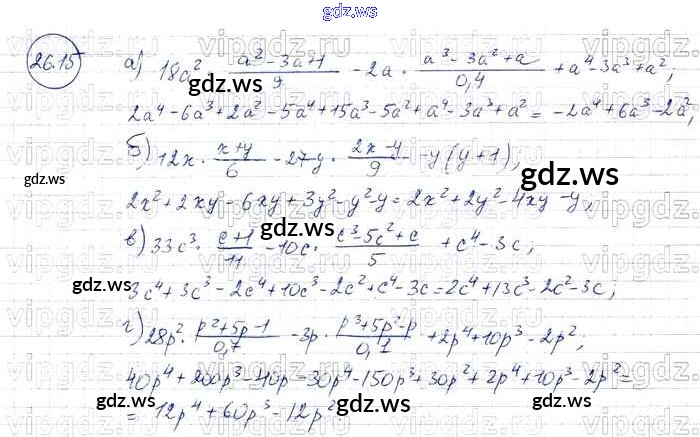 gdz.ws
26.15 а) 18a² · (a²-3a+1)/9 - 2a · (a³-3a²+a)/0,4 + a⁴-3a³+a²;
2a⁴-6a³+2a²-5a⁴+15a³-5a²+a⁴-3a³+a² = -2a⁴+6a³-2a²,
б) 12x · (x+y)/6 - 27y · (2x-y)/9 - y(y+1),
2x²+2xy-6xy+3y²-y²-y = 2x²+2y²-4xy-y,
в) 33c³ · (c+1)/11 - 10c · (c³-5c²+c)/5 + c⁴-3c;
3c⁴+3c³-2c⁴+10c³-2c²+c⁴-3c = 2c⁴+13c³-2c²-3c;
г) 28p² · (p²+5p-1)/0,7 - 3p · (p³+5p²-p)/0,1 + 2p⁴+10p³-2p²,
40p⁴+200p³-40p-30p⁴-150p³+30p²+2p⁴+10p³-2p² =
= 12p⁴+60p³-12p²